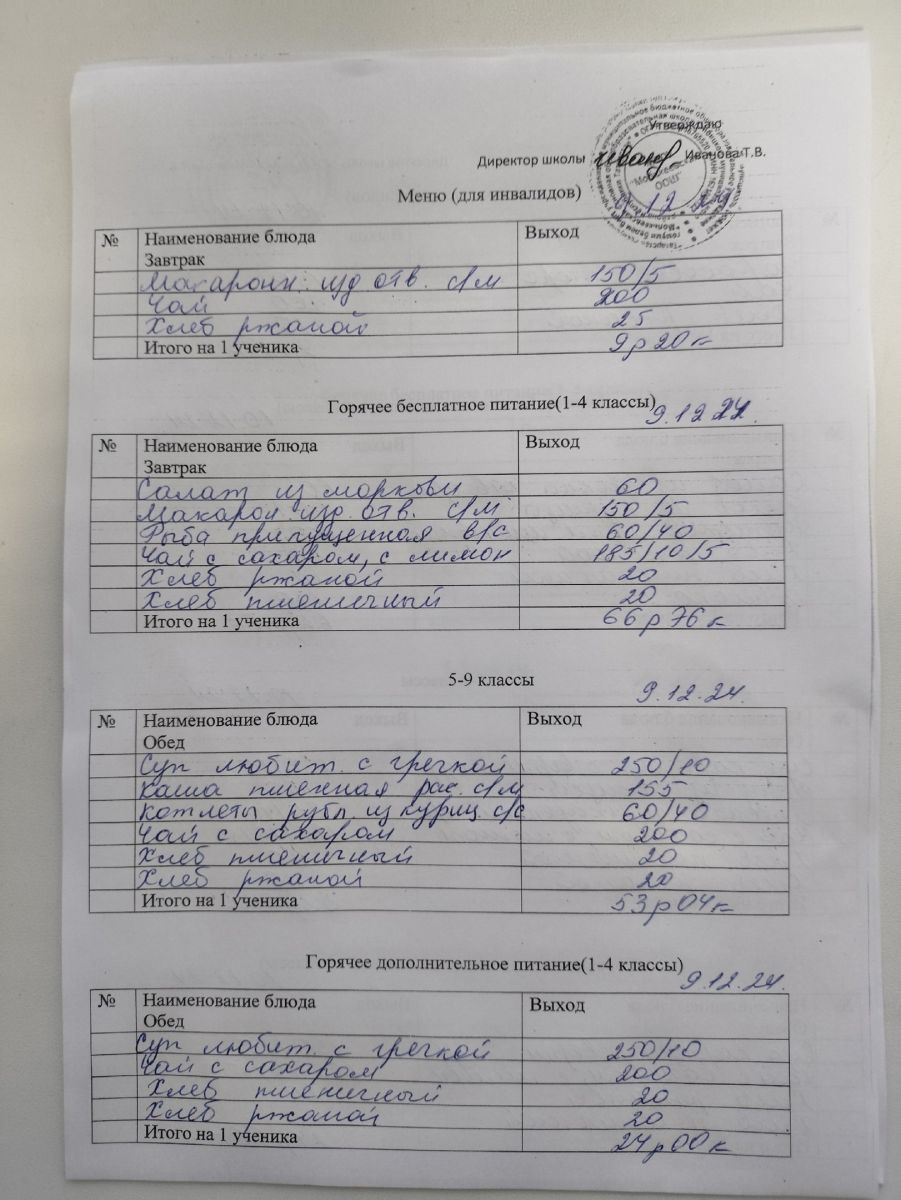 Утверждаю
Директор школы Иванова Т.В.
Меню (для инвалидов)
№ Наименование блюда Выход
Завтрак
Макаронн. изд отв. с/м 150/5
Чай 200
Хлеб ржаной 25
Итого на 1 ученика 9р20к
Горячее бесплатное питание(1-4 классы) 9.12.24
№ Наименование блюда Выход
Завтрак
Салат из моркови 60
Макарон изд. отв. с/м 150/5
Рыба припущенная в/с 60/40
Чай с сахаром, с лимон 185/10/5
Хлеб ржаной 20
Хлеб пшеничный 20
Итого на 1 ученика 66р76к
5-9 классы 9.12.24.
№ Наименование блюда Выход
Обед
Суп любит. с гречкой 250/10
Каша пшенная рас. с/м 155
Котлеты рубл. из куриц с/с 60/40
Чай с сахаром 200
Хлеб пшеничный 20
Хлеб ржаной 20
Итого на 1 ученика 53р04к
Горячее дополнительное питание(1-4 классы) 9.12.24.
№ Наименование блюда Выход
Обед
Суп любит. с гречкой 250/10
Чай с сахаром 200
Хлеб пшеничный 20
Хлеб ржаной 20
Итого на 1 ученика 24р00к